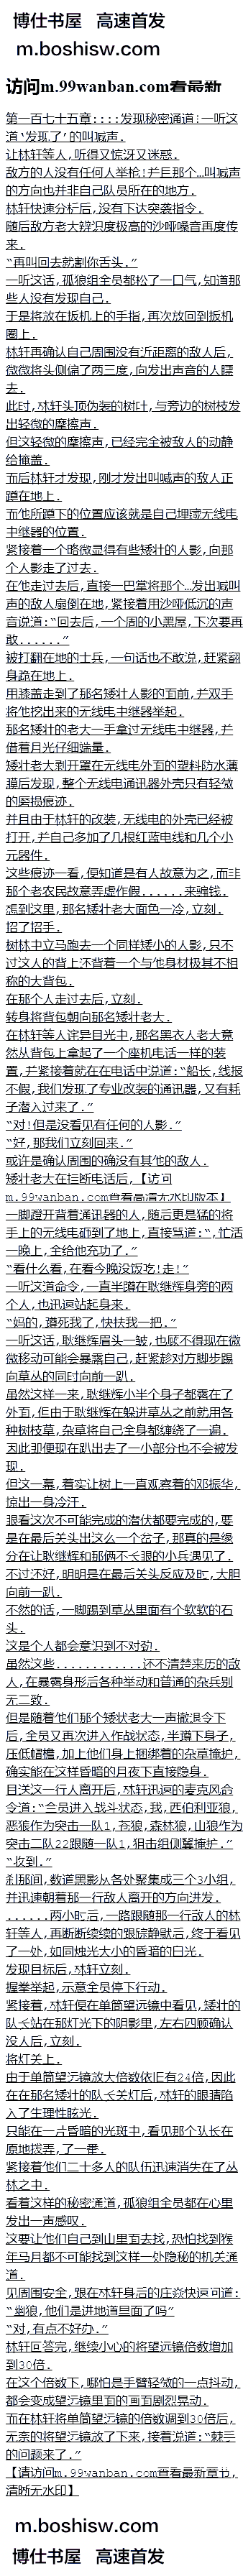 博仕书屋 高速首发
m.boshisw.com
访问m.99wanban.com查看最新
第一百七十五章::::发现秘密通道!一听这
道‘发现了’的叫喊声.
让林轩等人,听得又惊讶又迷惑.
敌方的人没有任何人举枪!并且那个…叫喊声
的方向也并非自己队员所在的地方.
林轩快速分析后,没有下达突袭指令.
随后敌方老大辨识度极高的沙哑嗓音再度传
来.
“再叫回去就割你舌头.”
一听这话,孤狼组全员都松了一口气,知道那
些人没有发现自己.
于是将放在扳机上的手指,再次放回到扳机
圈上.
林轩再确认自己周围没有近距离的敌人后,
微微将头侧偏了两三度,向发出声音的人瞟
去.
此时,林轩头顶伪装的树叶,与旁边的树枝发
出轻微的摩擦声.
但这轻微的摩擦声,已经完全被敌人的动静
给掩盖.
而后林轩才发现,刚才发出叫喊声的敌人正
蹲在地上.
而他所蹲下的位置应该就是自己埋藏无线电
中继器的位置.
紧接着一个略微显得有些矮壮的人影,向那
个人影走了过去.
在他走过去后,直接一巴掌将那个…发出喊叫
声的敌人扇倒在地,紧接着用沙哑低沉的声
音说道:“回去后,一个周的小黑屋,下次要再
敢......”
被打翻在地的士兵,一句话也不敢说,赶紧翻
身跪在地上.
用膝盖走到了那名矮壮人影的面前,并双手
将他挖出来的无线电中继器举起.
那名矮壮的老大一手拿过无线电中继器,并
借着月光仔细端量.
矮壮老大剥开罩在无线电外面的塑料防水薄
膜后发现,整个无线电通讯器外壳只有轻微
的磨损痕迹.
并且由于林轩的改装,无线电的外壳已经被
打开,并自己多加了几根红蓝电线和几个小
元器件.
这些痕迹一看,便知道是有人故意为之,而非
那个老农民故意弄虚作假......来骗钱.
想到这里,那名矮壮老大面色一冷,立刻.
招了招手.
树林中立马跑去一个同样矮小的人影,只不
过这人的背上还背着一个与他身材极其不相
称的大背包.
在那个人走过去后,立刻.
转身将背包朝向那名矮壮老大.
在林轩等人诧异目光中,那名黑衣人老大竟
然从背包上拿起了一个座机电话一样的装
置,并紧接着就在在电话中说道:“船长,线报
不假,我们发现了专业改装的通讯器,又有耗
子潜入过来了.”
“对!但是没看见有任何的人影.”
“好,那我们立刻回来.”
或许是确认周围的确没有其他的敌人.
矮壮老大在挂断电话后,【访问
m.99wanban.com查看高清无水印版本】
一脚蹬开背着通讯器的人,随后更是猛的将
手上的无线电砸到了地上,直接骂道:“,忙活
一晚上,全给他充功了.”
“看什么看,在看今晚没饭吃!走!”
一听这道命令,一直半蹲在耿继辉身旁的两
个人,也迅速站起身来.
“妈的,蹲死我了,快扶我一把.”
一听这话,耿继辉眉头一皱,也顾不得现在微
微移动可能会暴露自己,赶紧趁对方脚步踢
向草丛的同时向前一趴.
虽然这样一来,耿继辉小半个身子都露在了
外面,但由于耿继辉在躲进草丛之前就用各
种树枝草,杂草将自己全身都缠绕了一遍.
因此即便现在趴出去了一小部分也不会被发
现.
但这一幕,着实让树上一直观察着的邓振华,
惊出一身冷汗.
眼看这次不可能完成的潜伏都要完成的,要
是在最后关头出这么一个岔子,那真的是缘
分在让耿继辉和那俩不长眼的小兵遇见了.
不过还好,明明是在最后关头反应及时,大胆
向前一趴.
不然的话,一脚踢到草丛里面有个软软的石
头.
这是个人都会意识到不对劲.
虽然这些............还不清楚来历的敌
人,在暴露身形后各种举动和普通的杂兵别
无二致.
但是随着他们那个矮状老大一声撤退令下
后,全员又再次进入作战状态,半蹲下身子,
压低帽檐,加上他们身上捆绑着的杂草掩护,
确实能在这样昏暗的月夜下直接隐身.
目送这一行人离开后,林轩迅速的麦克风命
令道:“全员进入战斗状态,我,西伯利亚狼,
恶狼作为突击一队1,苍狼,森林狼,山狼作为
突击二队22跟随一队1,狙击组侧翼掩护.”
“收到.”
刹那间,数道黑影从各处聚集成三个3小组,
并迅速朝着那一行敌人离开的方向进发.
......两小时后,一路跟随那一行敌人的林
轩等人,再断断续续的跟踪静默后,终于看见
了一处,如同烛光大小的昏暗的白光.
发现目标后,林轩立刻.
握拳举起,示意全员停下行动.
紧接着,林轩便在单筒望远镜中看见,矮壮的
队长站在那灯光下的阴影里,左右四顾确认
没人后,立刻.
将灯关上.
由于单筒望远镜放大倍数依旧有24倍,因此
在在那名矮壮的队长关灯后,林轩的眼睛陷
入了生理性眩光.
只能在一片昏暗的光斑中,看见那个队长在
原地拨弄,了一番.
紧接着他们二十多人的队伍迅速消失在了丛
林之中.
看着这样的秘密通道,孤狼组全员都在心里
发出一声感叹.
这要让他们自己到山里面去找,恐怕找到猴
年马月都不可能找到这样一处隐秘的机关通
道.
见周围安全,跟在林轩身后的庄焱快速问道:
“幽狼,他们是进地道里面了吗”
“对,有点不好办.”
林轩回答完,继续小心的将望远镜倍数增加
到30倍.
在这个倍数下,哪怕是手臂轻微的一点抖动,
都会变成望远镜里面的画面剧烈晃动.
而在林轩将单筒望远镜的倍数调到30倍后,
无奈的将望远镜放了下来,接着说道:“棘手
的问题来了.”
【请访问m.99wanban.com查看最新章节,
清晰无水印】
m.boshisw.com
博仕书屋 高速首发